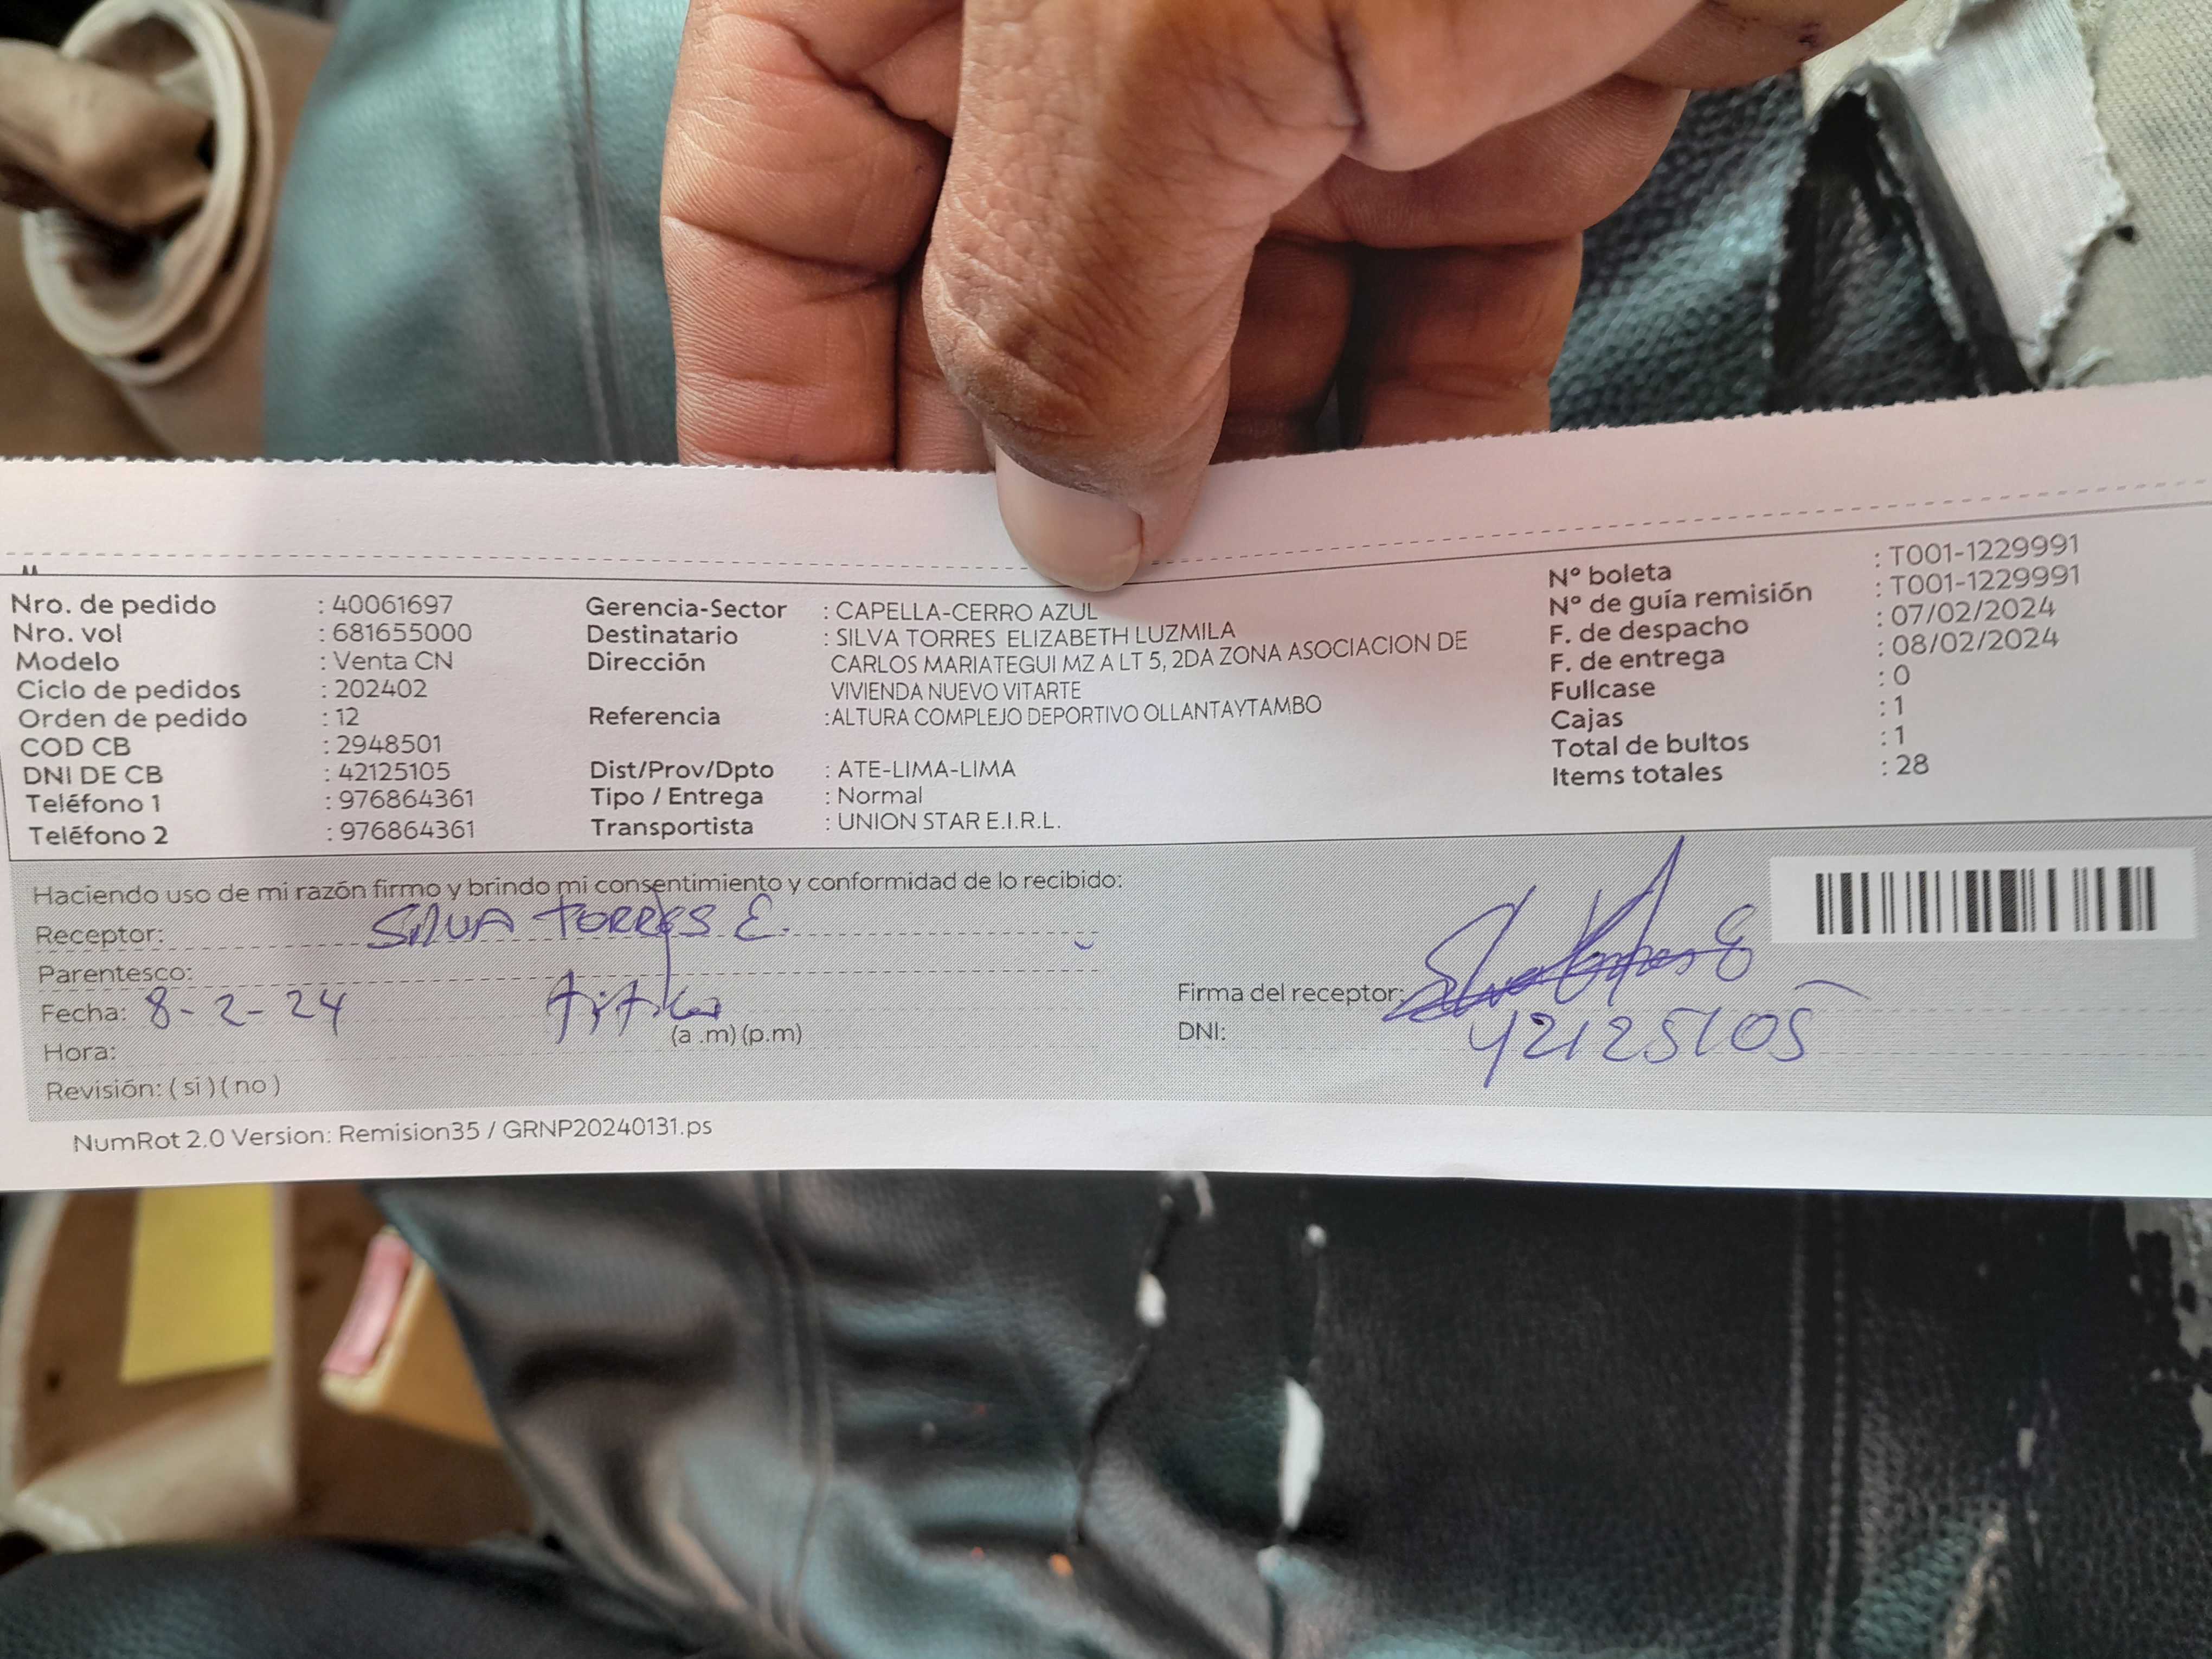 Nro. de pedido : 40061697
Nro. vol : 681655000
Modelo : Venta CN
Ciclo de pedidos : 202402
Orden de pedido : 12
COD CB : 2948501
DNI DE CB : 42125105
Teléfono 1 : 976864361
Teléfono 2 : 976864361
Gerencia-Sector : CAPELLA-CERRO AZUL
Destinatario : SILVA TORRES ELIZABETH LUZMILA
Dirección CARLOS MARIATEGUI MZ A LT 5, 2DA ZONA ASOCIACION DE
VIVIENDA NUEVO VITARTE
Referencia :ALTURA COMPLEJO DEPORTIVO OLLANTAYTAMBO
Dist/Prov/Dpto : ATE-LIMA-LIMA
Tipo / Entrega : Normal
Transportista : UNION STAR E.I.R.L.
N° boleta : T001-1229991
N° de guía remisión : T001-1229991
F. de despacho : 07/02/2024
F. de entrega : 08/02/2024
Fullcase : 0
Cajas : 1
Total de bultos : 1
Items totales : 28
Haciendo uso de mi razón firmo y brindo mi consentimiento y conformidad de lo recibido:
Receptor: SILVA TORRES E.
Parentesco:
Fecha: 8-2-24
Hora: (a .m) (p.m)
Revisión: ( si ) ( no )
Firma del receptor: Silva Torres E
DNI: 42125105
NumRot 2.0 Version: Remision35 / GRNP20240131.ps